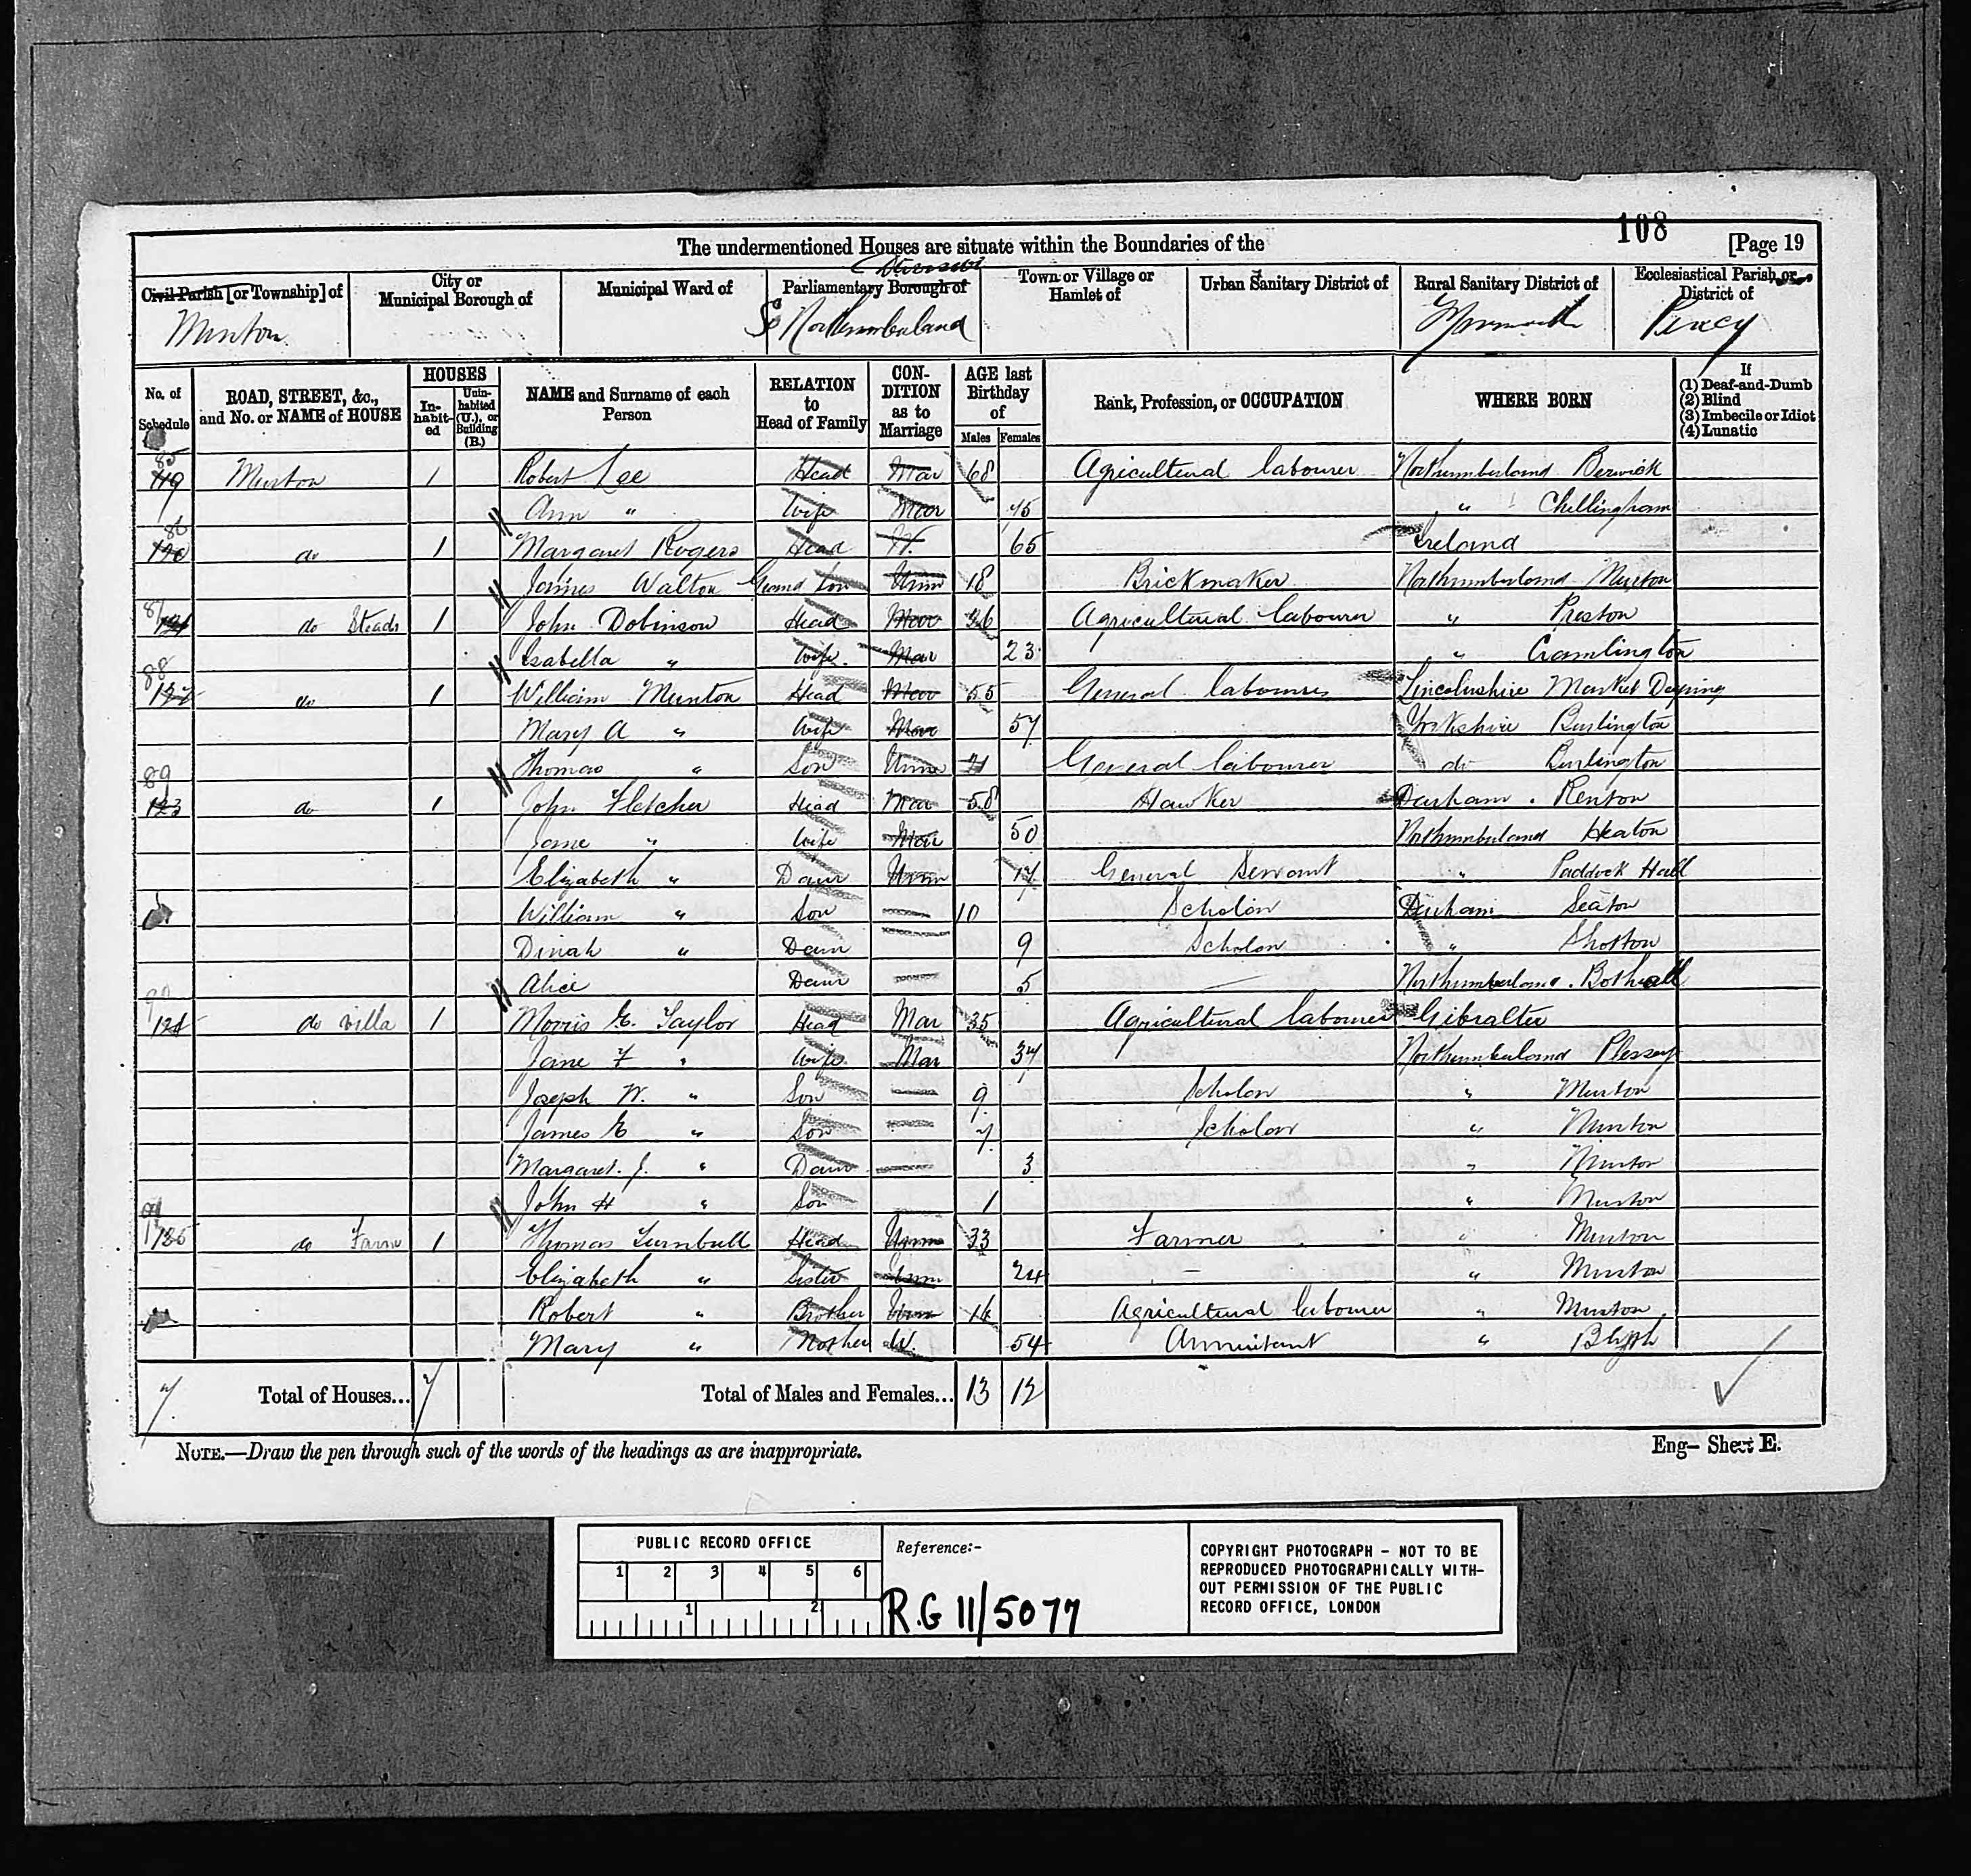 108
The undermentioned Houses are situate within the Boundaries of the [Page 19
Civil Parish [or Township] of City or Municipal Borough of Municipal Ward of Parliamentary Borough of Division Town or Village or Hamlet of Urban Sanitary District of Rural Sanitary District of Ecclesiastical Parish or District of
Murton So Northumberland Tynemouth Percy
No. of Schedule ROAD, STREET, &c., and No. or NAME of HOUSE HOUSES In-habit-ed Unin-habited (U.), or Building (B.) NAME and Surname of each Person RELATION to Head of Family CON-DITION as to Marriage AGE last Birthday of Males Females Rank, Profession, or OCCUPATION WHERE BORN If (1) Deaf-and-Dumb (2) Blind (3) Imbecile or Idiot (4) Lunatic
85 119 Murton 1 Robert Lee Head Mar 68 Agricultural labourer Northumberland Berwick
Ann " Wife Mar 45 " Chillingham
86 120 do 1 Margaret Rogers Head W. 65 Ireland
James Walton Grand Son Unm 18 Brickmaker Northumberland Murton
87 121 do Steads 1 John Dobinson Head Mar 26 Agricultural labourer " Preston
Isabella " Wife. Mar 23 " Cramlington
88 122 do 1 William Munton Head Mar 55 General labourer Lincolnshire Market Deeping
Mary A " Wife Mar 57 Yorkshire Burlington
Thomas " Son Unm 21 General labourer do Burlington
89 123 do 1 John Fletcher Head Mar 58 Hawker Durham. Renton
Jane " Wife Mar 50 Northumberland Heaton
Elizabeth " Daur Unm 17 General Servant " Paddock Hall
William " Son — 10 Scholar Durham Seaton
Dinah " Daur 9 Scholar " Shotton
Alice Daur — 5 — Northumberland. Bothwell
90 124 do Villa 1 Morris E. Taylor Head Mar 35 Agricultural labourer Gibralter
Jane F " Wife Mar 37 Northumberland Plessey
Joseph W. " Son — 9 Scholar " Murton
James E " Son — 7 Scholar " Murton
Margaret. J. " Daur — 3 " Murton
John H " Son 1 " Murton
91 125 do Farm 1 Thomas Turnbull Head Unm 33 Farmer " Murton
Elizabeth " Sister Unm 24 — " Murton
Robert " Brother Unm 16 Agricultural labourer " Murton
Mary " Mother W. 54 Annuitant " Blyth
7 Total of Houses... 7 Total of Males and Females... 13 12
NOTE.—Draw the pen through such of the words of the headings as are inappropriate. Eng— Sheet E.
PUBLIC RECORD OFFICE
1 2 3 4 5 6
1 2
Reference:-
R.G 11/5077
COPYRIGHT PHOTOGRAPH - NOT TO BE
REPRODUCED PHOTOGRAPHICALLY WITH-
OUT PERMISSION OF THE PUBLIC
RECORD OFFICE, LONDON